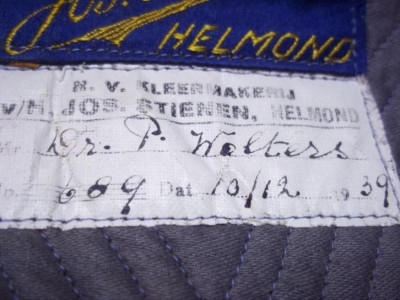 JOS.
HELMOND
N. V. KLEERMAKERIJ
v/H. JOS. STIENEN, HELMOND
Dr. P. Wolters
No. 689 Dat. 13/12 1939